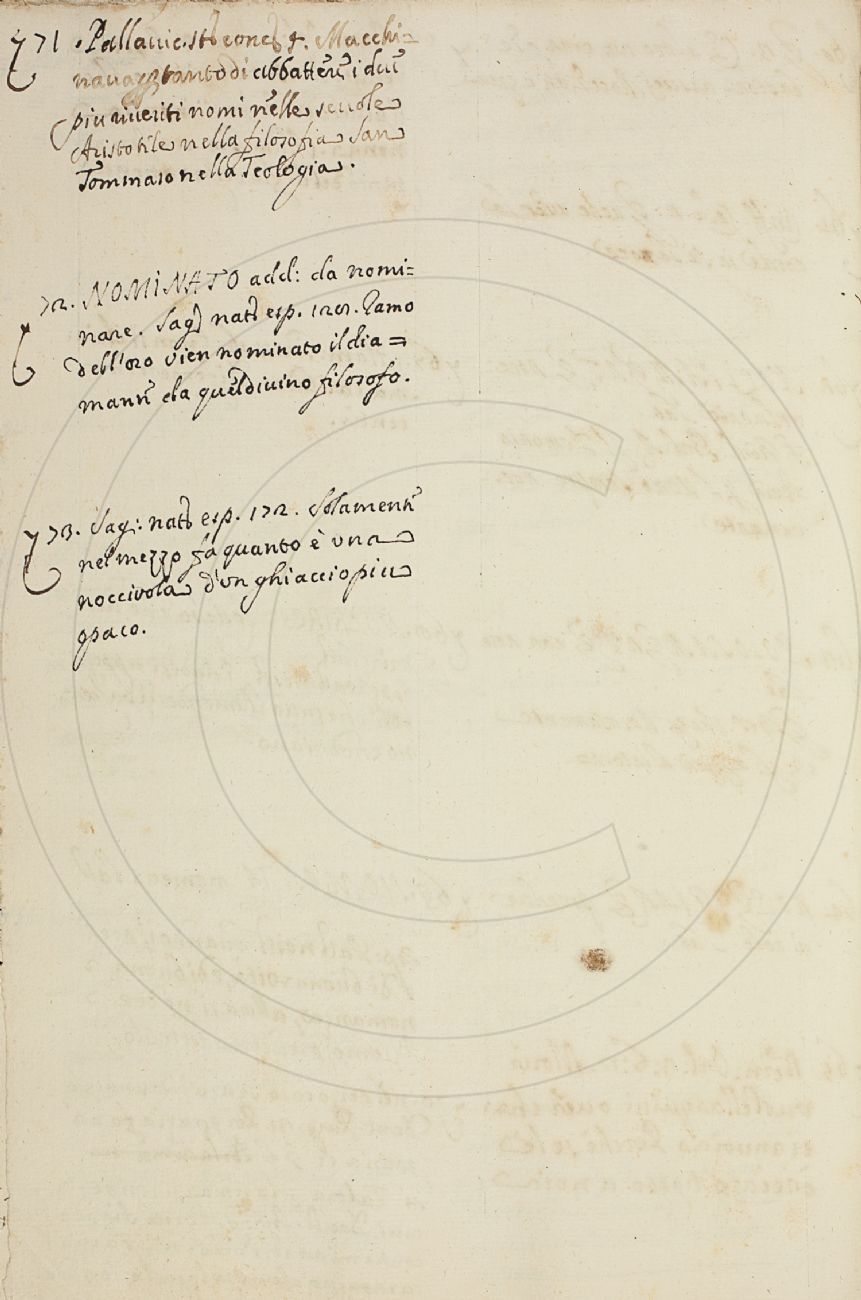 71. Pallavic. st: conc: 4. Macchi=
navan tanto di abbattere i due
piu riveriti nomi nelle scuole
Aristotile nella filosofia San
Tommaso nella Teologia.
72. NOMINATO add: da nomi=
nare. Sag: nat: esp. Ramo
dell'oro vien nominato il dia=
mante da quel divino filosofo.
73. Sag: nat: esp. 172. Solamente
nel mezzo fa quanto è una
nocciuola d'un ghiaccio piu
opaco.